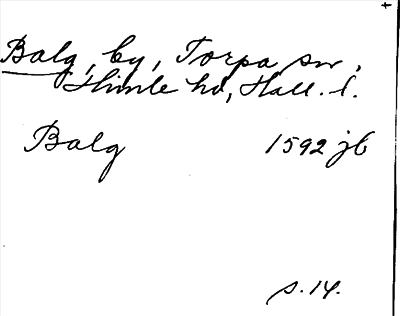 Balg, by, Torpa sn,
Himle hd, Hall. l.
Balg 1592 jb
s. 14.